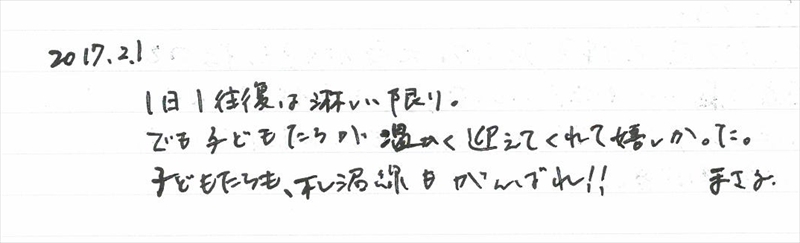 2017.2.1
1日1往復は淋しい限り。
でも子どもたちが温かく迎えてくれて嬉しかった。
子どもたちも、札沼線もがんばれ!!